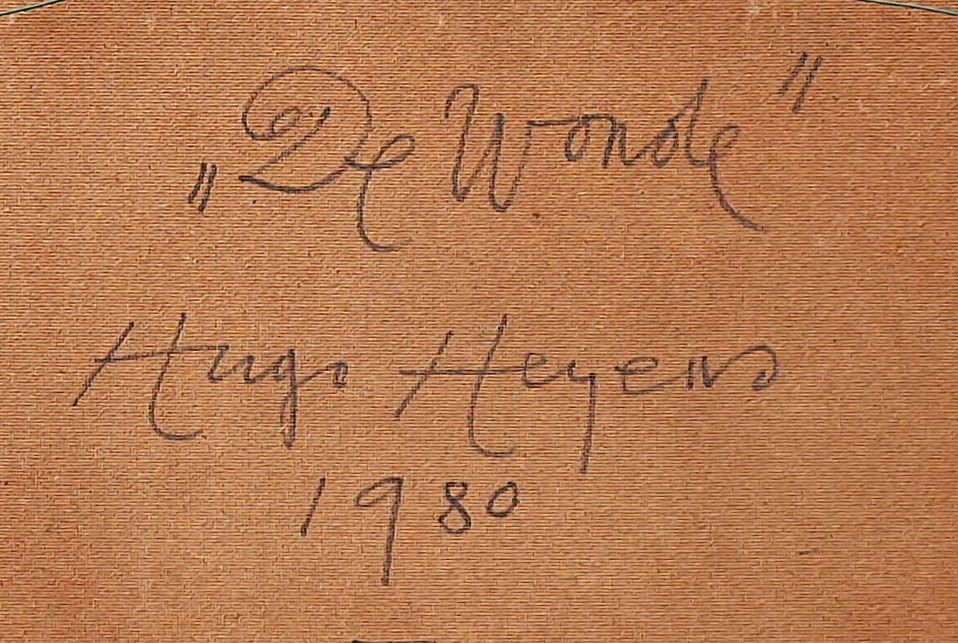 „De Wonde"
Hugo Heyens
1980